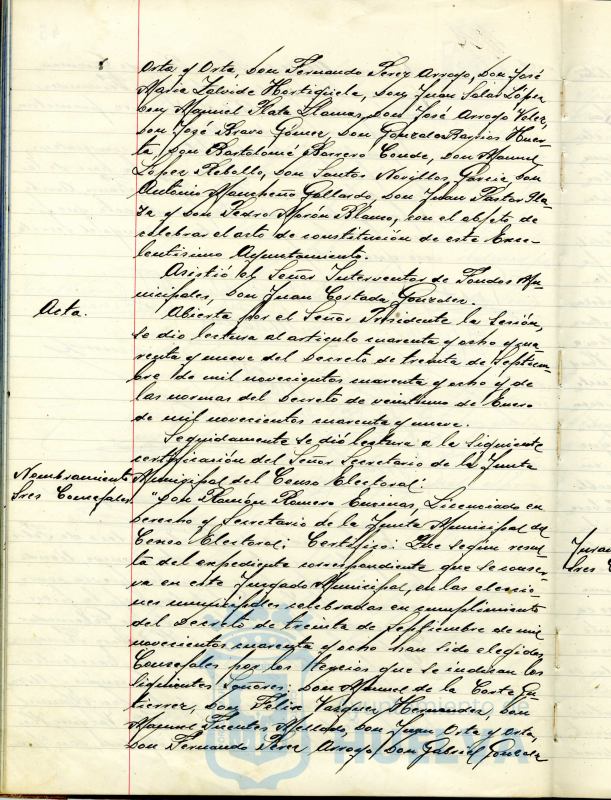 Orta y Orta, Don Fernando Perez Arroyo, Don José
Maria Zalvide Hortigüela, Don Juan Salas López,
Don Manuel Plata Llamas, Don José Arroyo Velez,
Don José Bravo Gómez, Don Gonzalo Barrios Huer-
ta, Don Bartolomé Borrero Conde, Don Manuel
López Rebollo, Don Santos Novillos Garcia, Don
Antonio Mancheño Gallardo, Don Juan Pastor Pla-
za y Don Pedro Morón Blanco, con el objeto de
celebrar el acto de constitución de este Exce-
lentísimo Ayuntamiento.
Asistió el Señor Interventor de Fondos Mu-
nicipales, Don Juan Cortada Gonzalez.
Acta.
Abierta por el Señor Presidente la Sesión,
se dio lectura al articulo cuarenta y ocho y cua-
renta y nueve del Decreto de treinta de Septiem-
bre de mil novecientos cuarenta y ocho y de
las normas del Decreto de veintiuno de Enero
de mil novecientos cuarenta y nueve.
Seguidamente se dió lectura a la siguiente
certificación del Señor Secretario de la Junta
Nombramiento
Sres Concejales
Municipal del Censo Electoral:
"Don Ramón Romero Encinas, Licenciado en
Derecho y Secretario de la Junta Municipal del
Censo Electoral; Certifico: Que segun resul-
ta del expediente correspondiente que se conser-
va en este Juzgado Municipal, en las eleccio-
nes municipales celebradas en cumplimiento
del Decreto de treinta de Septiembre de mil
novecientos cuarenta y ocho han sido elegidos
Concejales por los tercios que se indican los
siguientes señores: Don Manuel de la Corte Gu-
tierrez, Don Felix Vazquez Hernandez, Don
Manuel Fuentes Mellado, Don Juan Orta y Orta,
Don Fernando Perez Arroyo, Don Gabriel Gonzalez
Ayuntamiento de
HUELVA
Sres